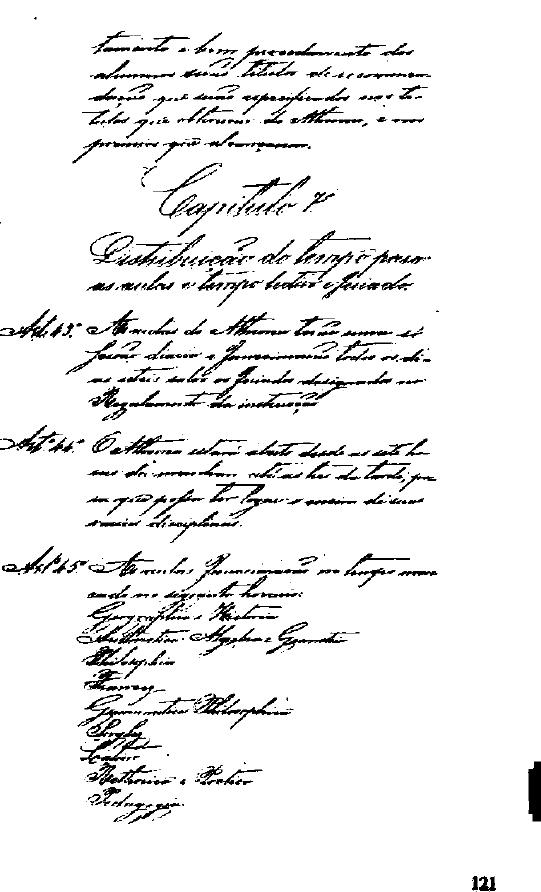 tamento e bom procedimento dos
alumnos serão titulos de recommen-
dação que serão especificados nos ti-
tulos que obtiverem do Atheneu, e nos
premios que alcançarem.
Capitulo 7º
Distribuição do tempo para
as aulas e tempo lectivo e feriado.
Art. 43º. As aulas do Atheneu terão uma só
sessão diaria e funccionarão todos os di-
as uteis salvo os feriados designados no
Regulamento da instrucção
Artº 44º. O Atheneu estará aberto desde as sete ho-
ras da manham até as tres da tarde, pa-
ra que possa ter logar o ensino de suas
varias disciplinas.
Artº 45º As aulas funccionarão no tempo marcado
no seguinte horario:
Geographia e Historia
Arithmetica Algebra e Geometria
Philosophia
Francez
Grammatica Philosophica
Inglez
Latim
Rethorica e Poetica
Pedagogia
121